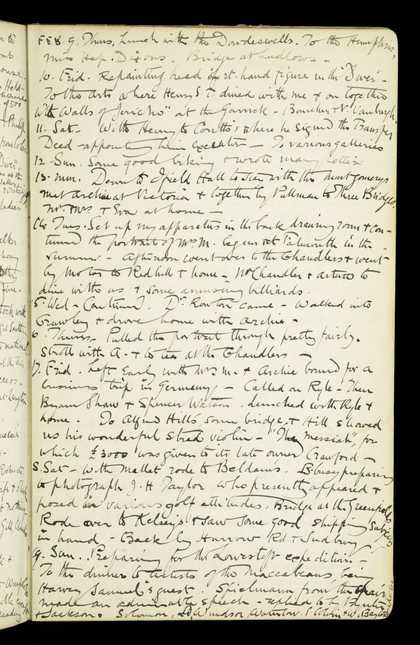 FEB. 9. Thurs, Lunch with the Dowdeswells. To the Humphris,
Miss Hep. Dixons. Bridge at
10. Frid. Repainting head on st. hand figure in the "Diver" -
To the Arts where Henry S. dined with me & on together
with "Walls of Jericho" at the Garrick - Bourchier & V. Vanburgh.
11. Sat. With Henry to where he signed the
Deed appointing him executor - To various galleries
12. Sun. Some good biking & wrote many letters
13. Mon. Down to Ifield Hall to stay with the Montgomerys
met Archie at Victoria & together by Pullman to Three Bridges.
Mr. Mrs & Eva at home -
14. Tues. Set up my apparatus in the back drawing room & con-
tinued the portrait of Mrs M. begun at Falmouth in the
summer - Afternoon went over to the Chandlers & went
by Motor to Redhill & home - Mr Chandler & to
dine with us & some amusing billiards.
15. Wed - Continued. Dr. came - Walked into
Crawley & drove home with Archie -
16. Thurs. Pulled the portrait through pretty fairly.
Stroll with A. & to tea at the Chandlers -
17. Frid. Left Early with Mrs M. & Archie bound for a
business trip in Germany - Called on Ryle - Then
Byam Shaw & Spencer Watson. Lunched with Ryle &
home. To Alfred Hills' some bridge & Hill showed
us his wonderful Strad violin - "The Messiah" for
which £3000 was given to its late owner Crawford -
18. Sat - With Mallet rode to Beldams. B. busy preparing
to photograph J. H. Taylor who presently appeared &
posed in various golf attitudes. Bridge at the
Rode over to & saw some good shipping
in hand - Back by Harrow Rd & Sudbury
19. Sun. Preparing for the Lowestoft expedition -
To the dinner to Artists of the Maccabeans, being
Harvey Samuel's guest. Spielmann from the chair
made an admirable speech - replied to by
& Jackson. Solomon, Windsor, Waterlow,